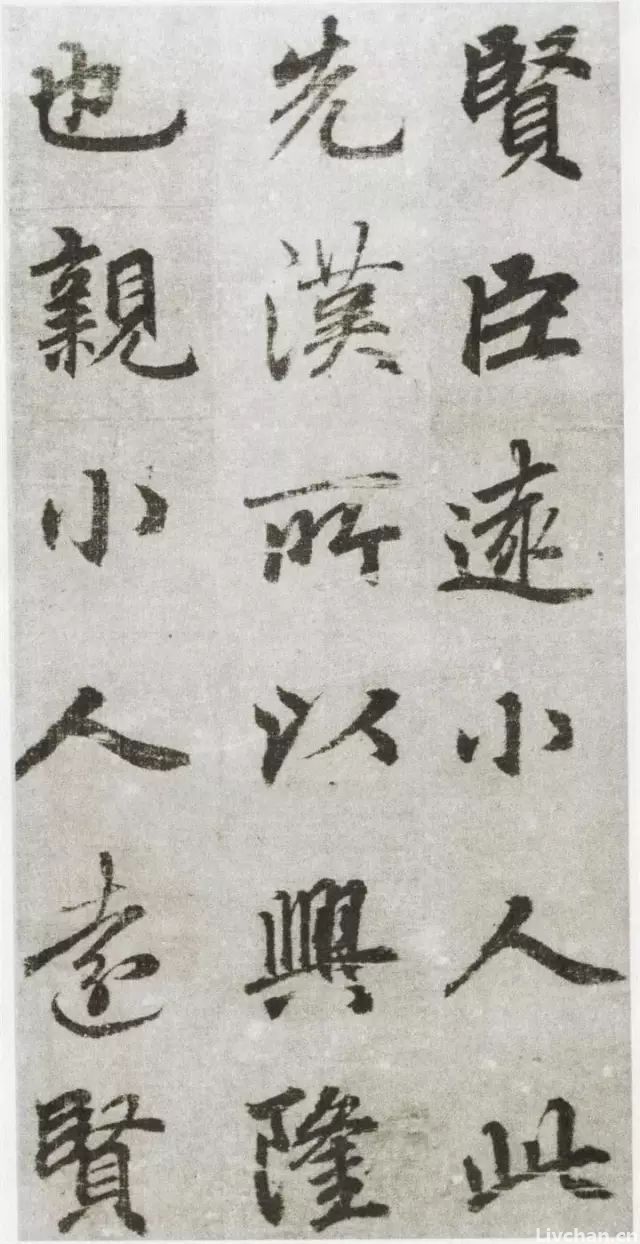 賢臣遠小人此
先漢所以興隆
也親小人遠賢
Livchan.cn